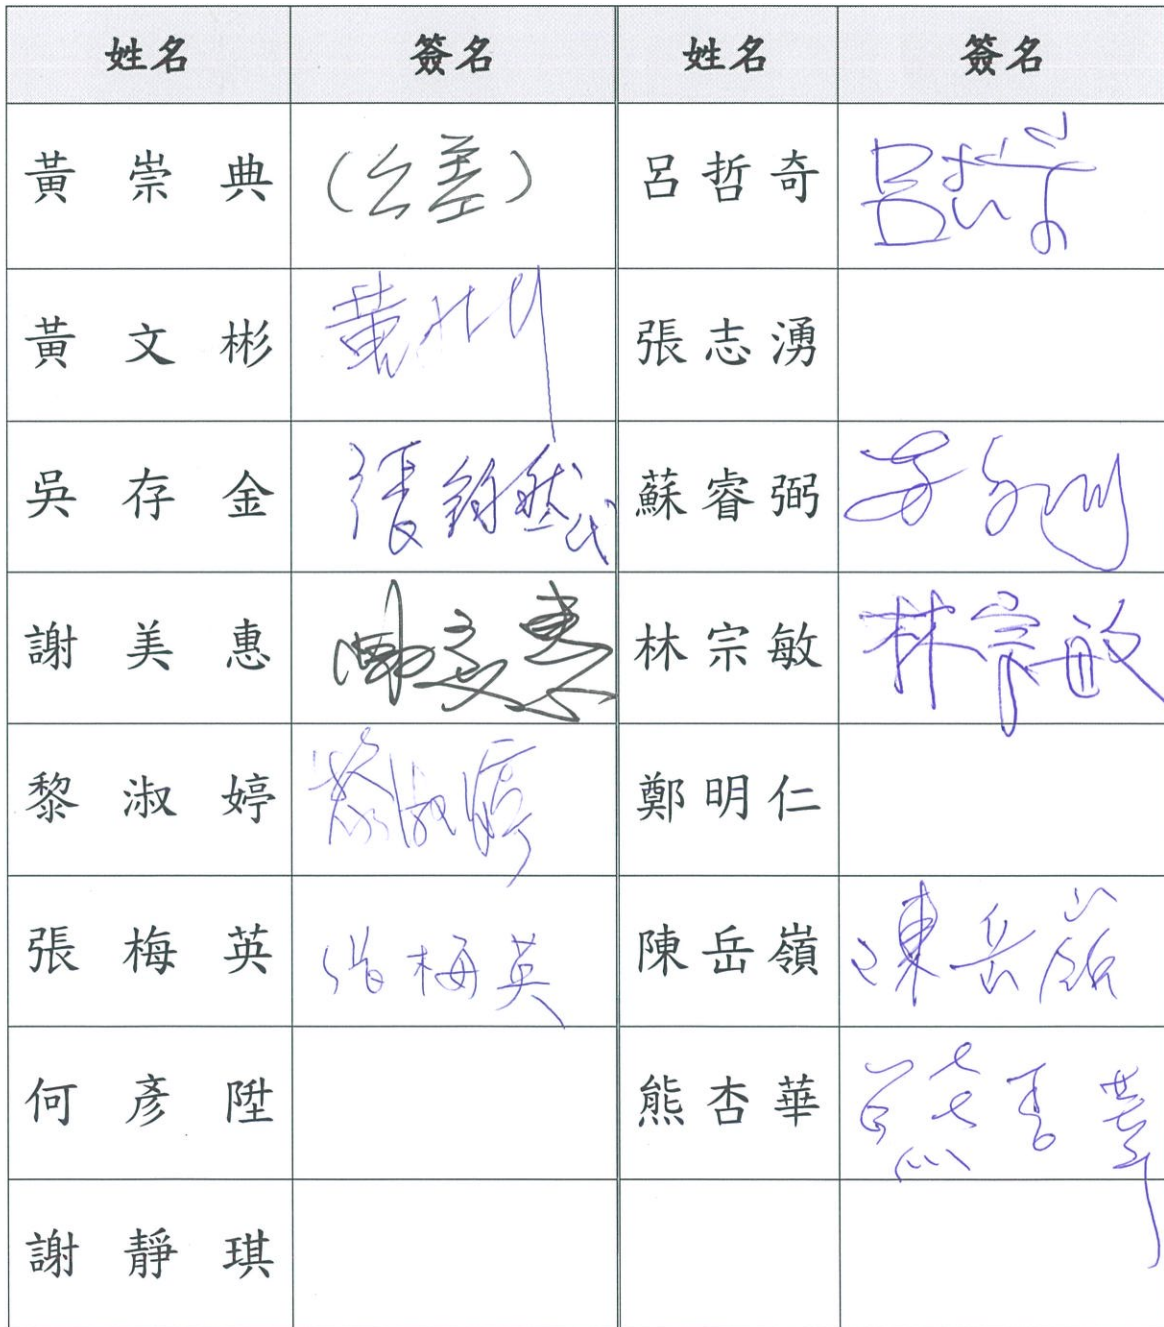 姓名 簽名 姓名 簽名
黃崇典 (公差) 呂哲奇 呂哲奇
黃文彬 黃文彬 張志湧
吳存金 蘇睿弼
謝美惠 謝美惠 林宗敏 林宗敏
黎淑婷 黎淑婷 鄭明仁
張梅英 張梅英 陳岳嶺 陳岳嶺
何彥陞 熊杏華 熊杏華
謝靜琪